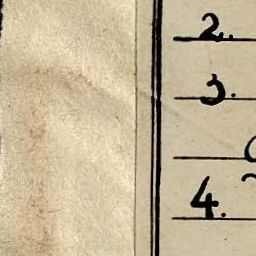 2.
3.
4.